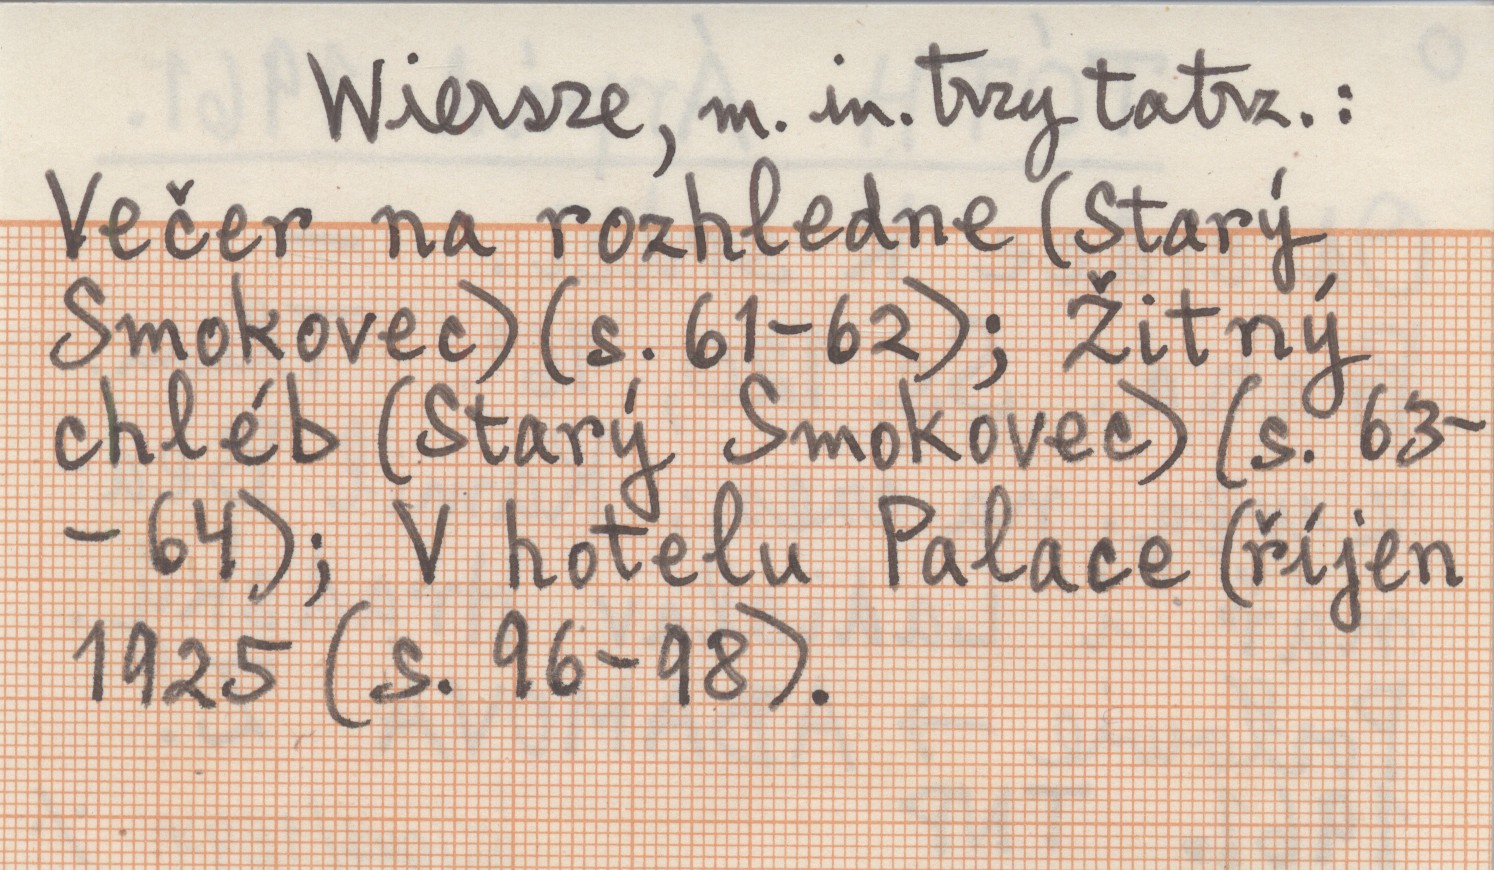 Wiersze, m. in. trzy tatrz.:
Večer na rozhledne (Starý
Smokovec) (s. 61-62); Žitný
chléb (Starý Smokovec) (s. 63-
-64); V hotelu Palace (říjen
1925 (s. 96-98).